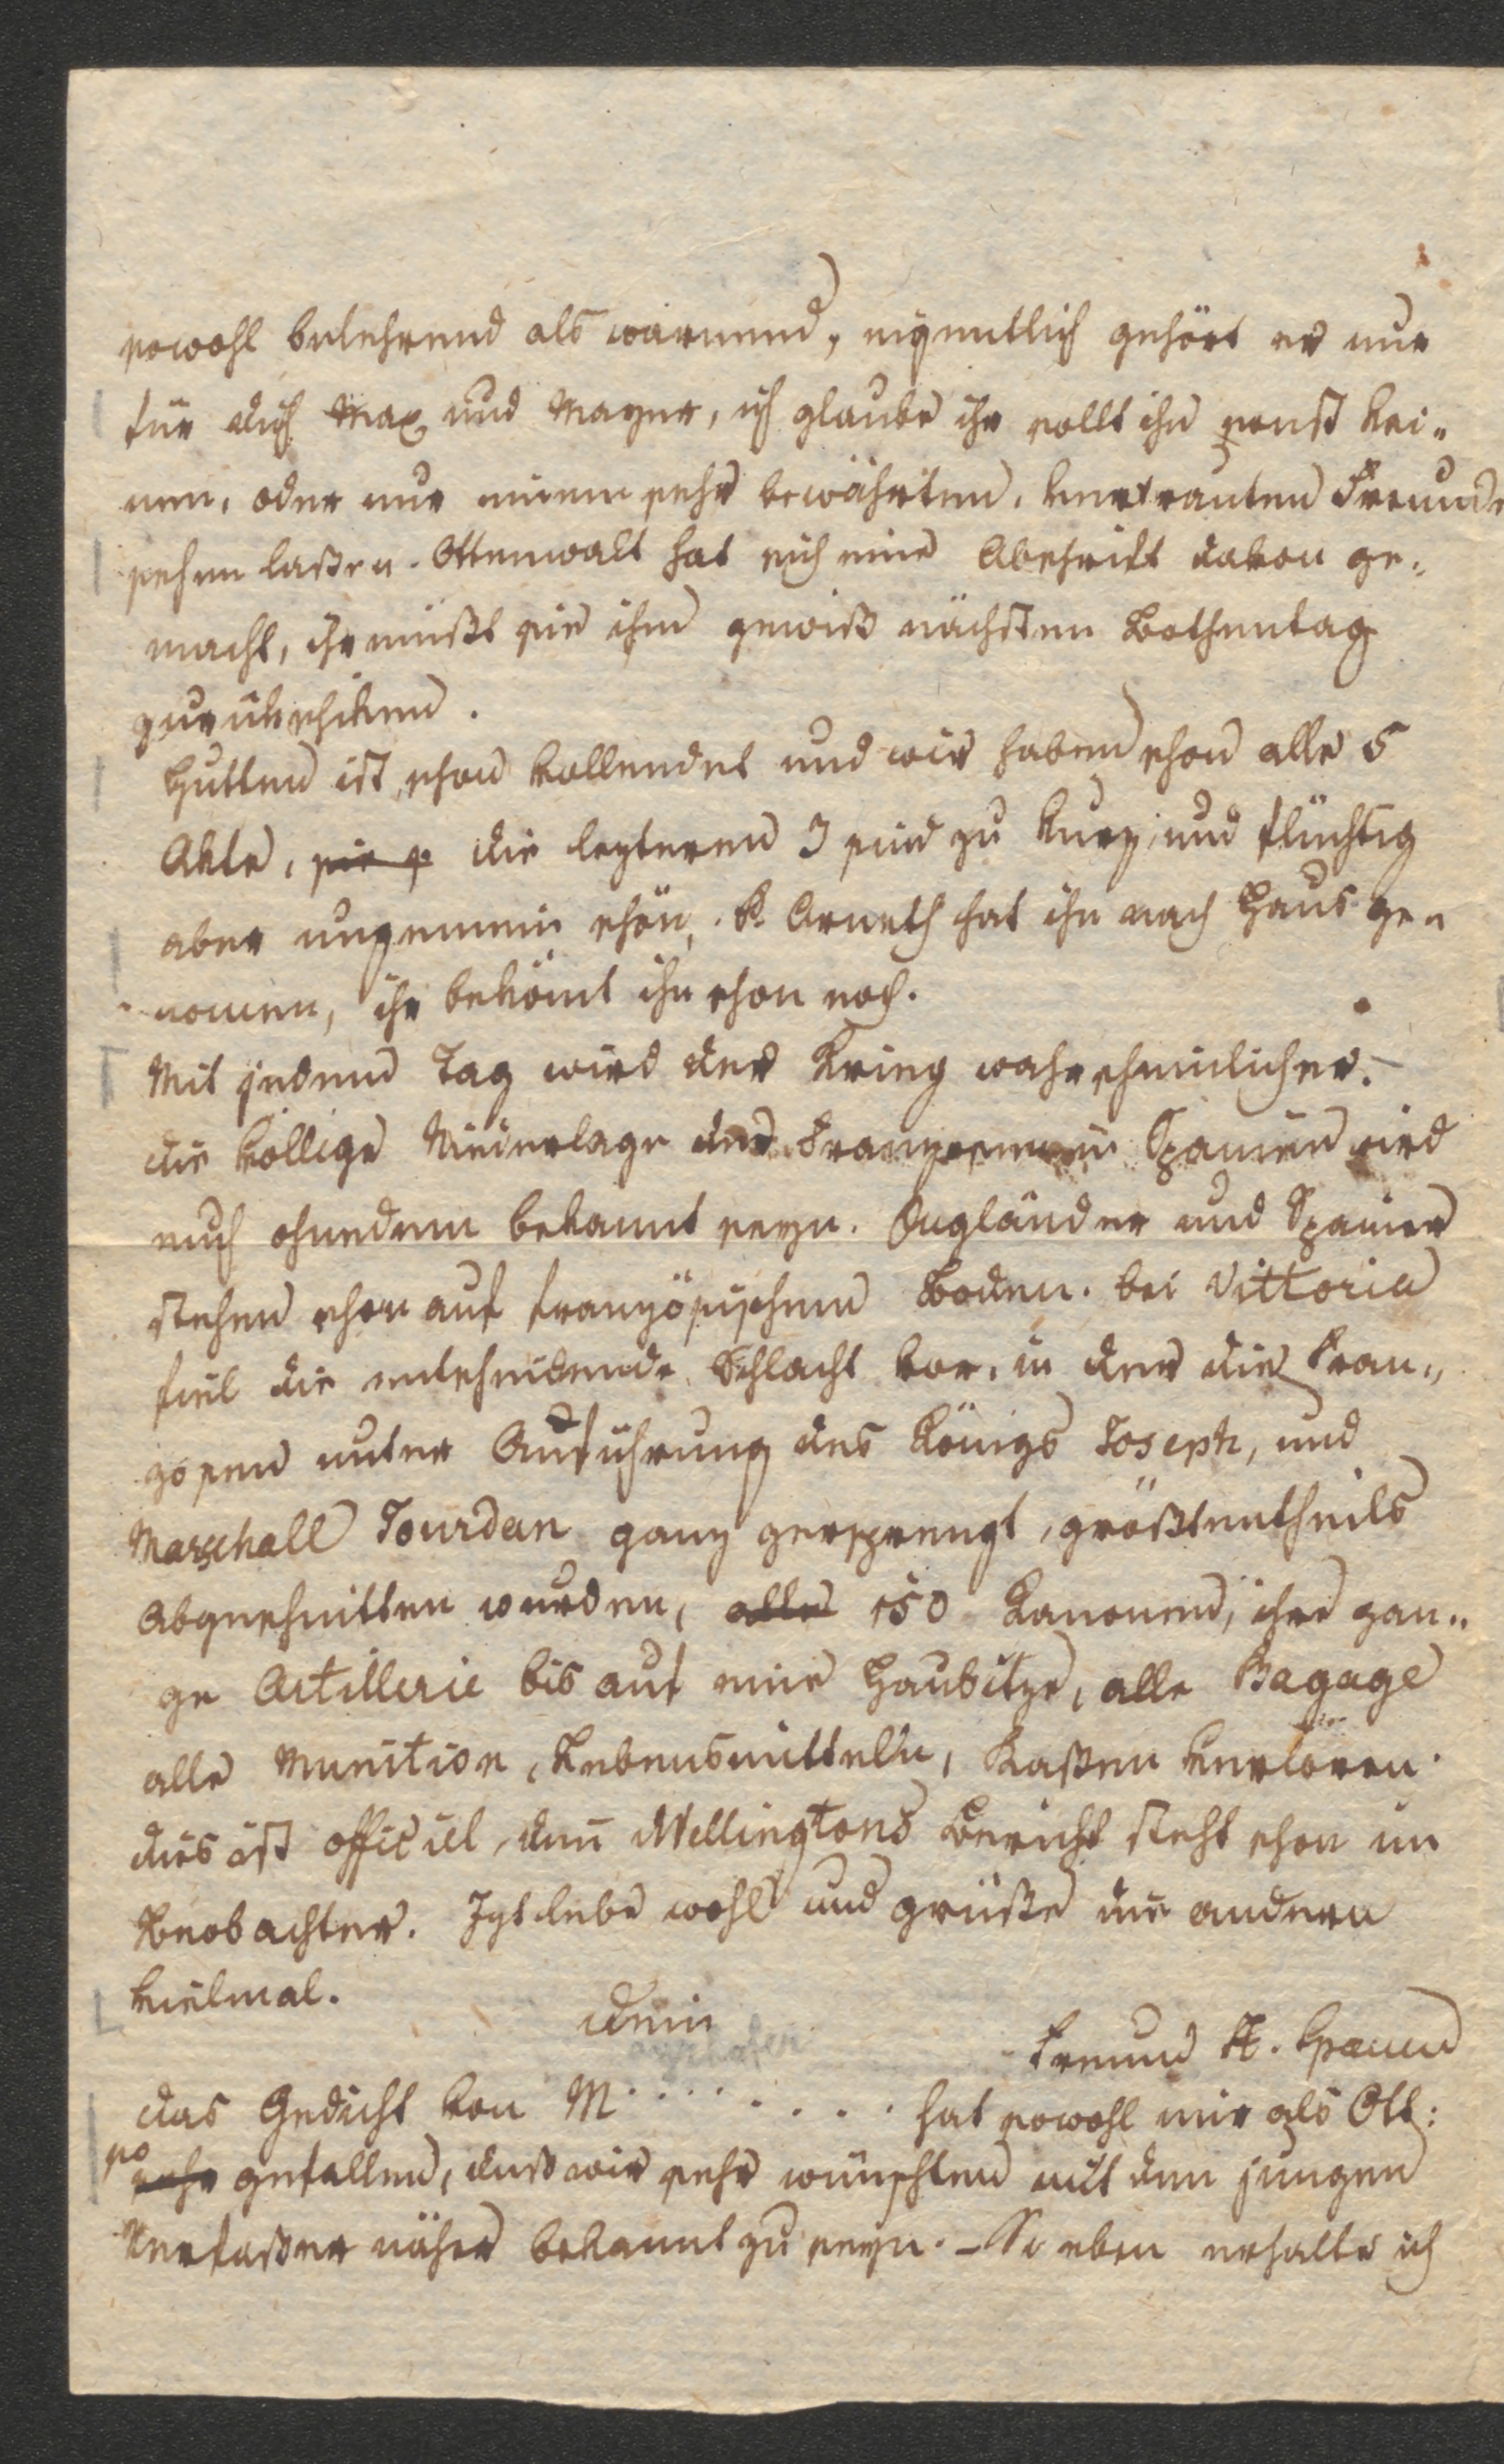 sowohl belehrend als wärmend, eigentlich gehört er nur
für dich Max und Mayer, ich glaube ihr sollt ihn sonst kei„
nem, oder nur einem sehr bewährten, vertrauten Freunde
sehen laßen. Ottenwalt hat euch eine Abschrift davon ge„
macht, ihr müßt sie ihm gewiß nächsten Bothentag
zurükschiken.
Hutten ist schon vollendet und wir haben schon alle 5
Akte, sie s. die lezteren 3 sind zu kurz und flüchtig
aber ungemein schön. P. Arneth hat ihn nach Haus ge„
nomen, ihr bekömt ihn schon noch.
Mit jedem Tag wird der Krieg wahrscheinlicher. –
die völlige Niederlage der Franzosen in Spanien wird
euch ohnedem bekannt seyn. Engländer und Spanier
stehen schon auf französischem Boden. bei Vittoria
fiel die entscheidende Schlacht vor, in der die Fran„
zosen unter Anführung des Königs Joseph, und
Marschall Jourdan ganz zersprengt, größtentheils
abgeschnitten wurden, alle 150 Kanonen, ihre gan„
ze Artillerie bis auf eine Haubitze, alle Bagage
alle Munition, Lebensmitteln, Kaßen verloren.
dies ist officiel, den Wellingtons Bericht steht schon im
Beobachter. Jzt lebe wohl und grüße die andern
vielmal.
dein
Freund A. Spaun
das Gedicht von M . . . . . . . . hat sowohl mir als Ott:
so
sehr gefallen, daß wir sehr wünschten mit dem jungen
Verfaßer näher bekannt zu seyn. – So eben erhalte ich